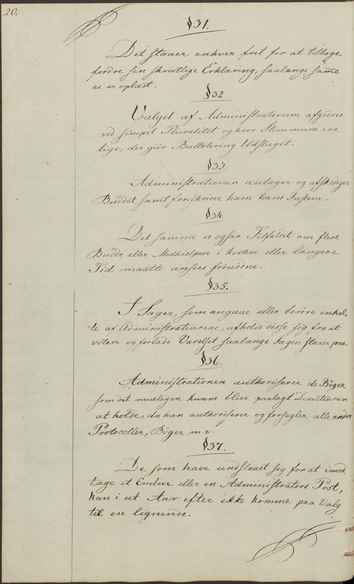 20.
§31.
Det staaer enhver frit for at tilbage
fordre sin skriftlige Erklæring, saalænge samme
ei er oplæst.
§32
Valget af Administrationen afgjøres
ved simpel Pluralitet og hvor Stemmerne ere
lige, der gjør Ballotering Udslaget.
§33
Administrationen antager og afskediger
Budet samt foreskriver ham hans
§34
Det samme er ogsaa Tilfældet om flere
Bude eller Medhjelpere i kortere eller længere
Tid maatte ansees fornødne.
§35.
I Sager, som angaae eller berøre enkel-
te af Administrationen, afholde disse sig fra at
votere og forlade Værelset saalænge Sagen staaer paa
§36.
Administrationen authoriserer de Bøger
som det muligen kunde blive paalagt
at holde, da han authoriserer og forsegler alle andre
Protocoller, Bøger m.v.
§37.
De som have undslaaet sig for at mod-
tage et Embede eller en Administrators Post,
kan i et Aar efter ikke komme paa Valg
til en lignende.